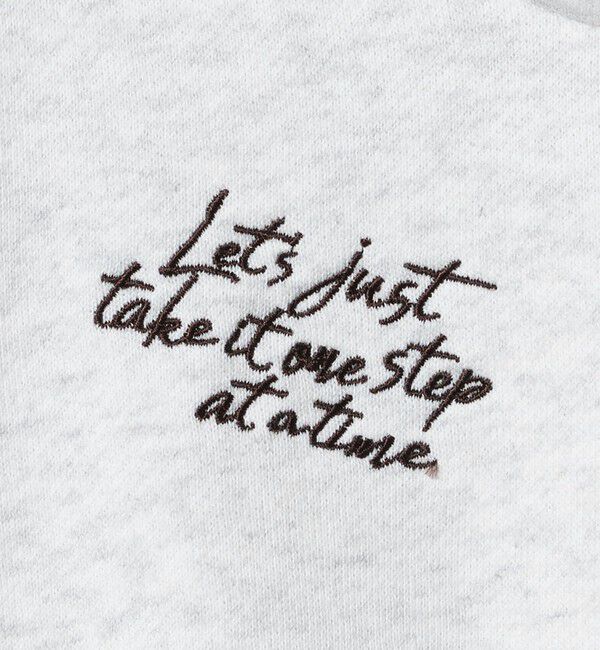 Let's just
take it one step
at a time.